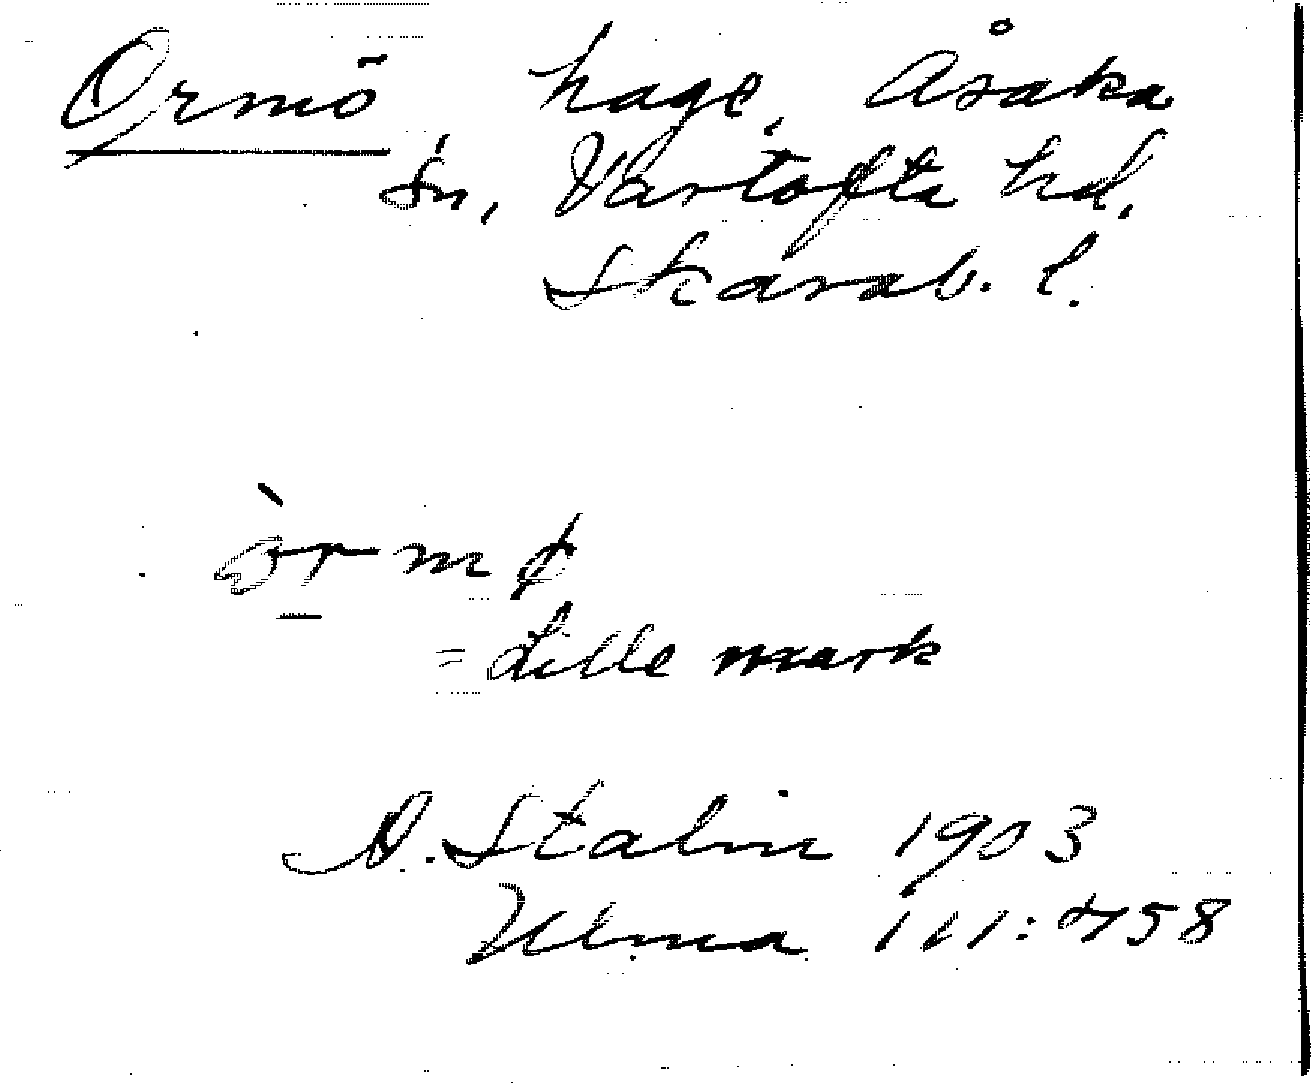 Ormö, hage, Åsaka
sn, Vartofta hd.
Skarab. l.
òrmø
= Lille mark
A. Stalin 1903
Ulma 111:458